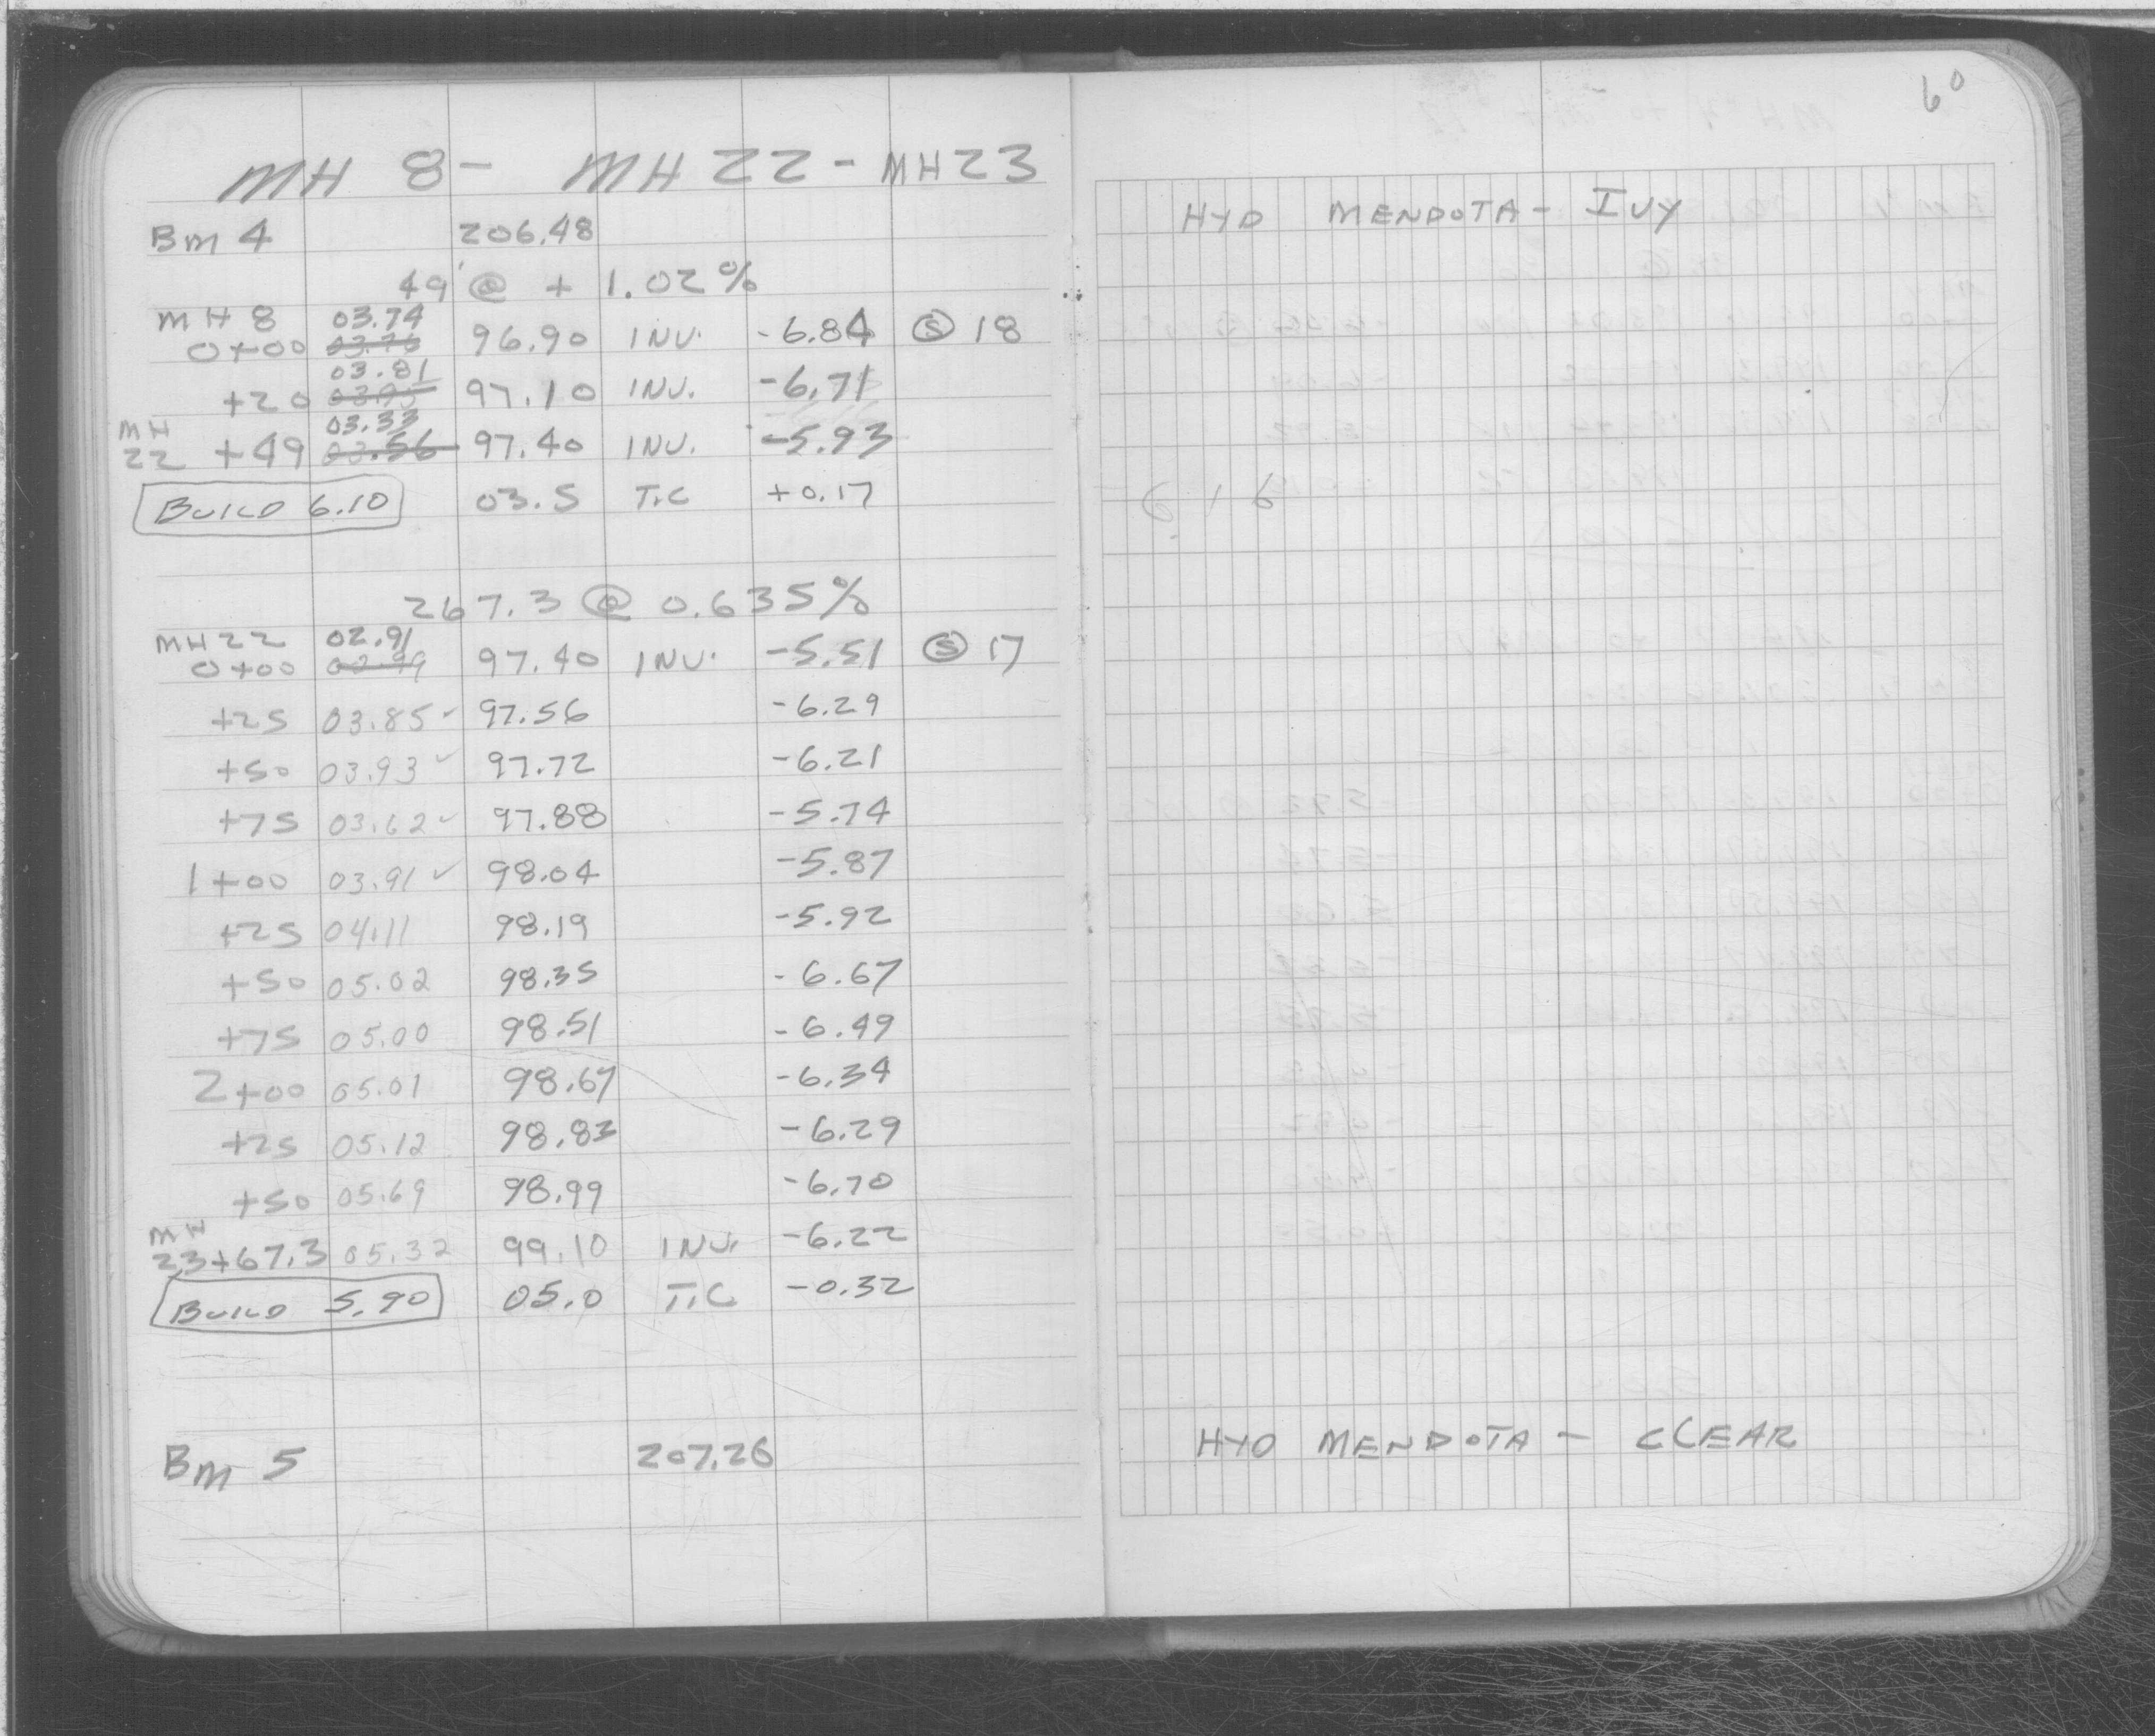 MH 8- MH 22 - MH23
BM 4 206.48
49' @ + 1.02%
MH 8 03.74
0+00 03.76 96.90 INV. -6.84 Ⓢ 18
03.81
+20 97.10 INV. -6.71
MH 03.33
22 +49 03.56 97.40 INV. -5.93
BUILD 6.10 03.5 T.C +0.17
267.3 @ 0.635%
MH22 02.91
0+00 02.99 97.40 INV. -5.51 Ⓢ 17
+25 03.85✓ 97.56 -6.29
+50 03.93✓ 97.72 -6.21
+75 03.62✓ 97.88 -5.74
1+00 03.91✓ 98.04 -5.87
+25 04.11 98.19 -5.92
+50 05.02 98.35 -6.67
+75 05.00 98.51 -6.49
2+00 05.01 98.67 -6.34
+25 05.12 98.83 -6.29
+50 05.69 98.99 -6.70
MH
23+67.3 05.32 99.10 INV. -6.22
BUILD 5.90 05.0 T.C -0.32
BM 5 207.26
60
HYD MENDOTA - IVY
6 1 6
HYD MENDOTA - CLEAR